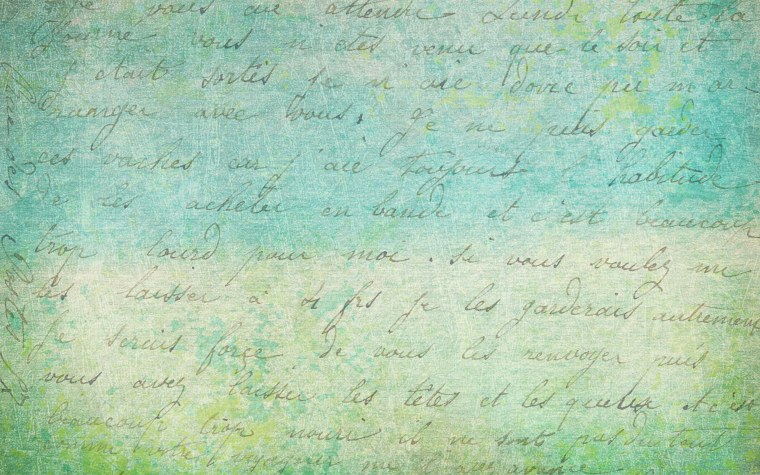 vous ai attendu Lundi toute la
Journee vous n'etes venu que le soir et
j'etait sortis je n'aie donc pu m'ar
ranger avec vous, Je ne puis garder
ces vaches car j'aie toujours l'habitude
de les acheter en bande et c'est beaucoup
trop lourd pour moi. Si vous voulez me
les laisser à 4 frs je les garderais autrement
Je serais forçé de vous les renvoyer puis
vous avez laisser les têtes et les queux et c'est
beaucoup trop nourri il ne sont pas du tout
comme votre me l'